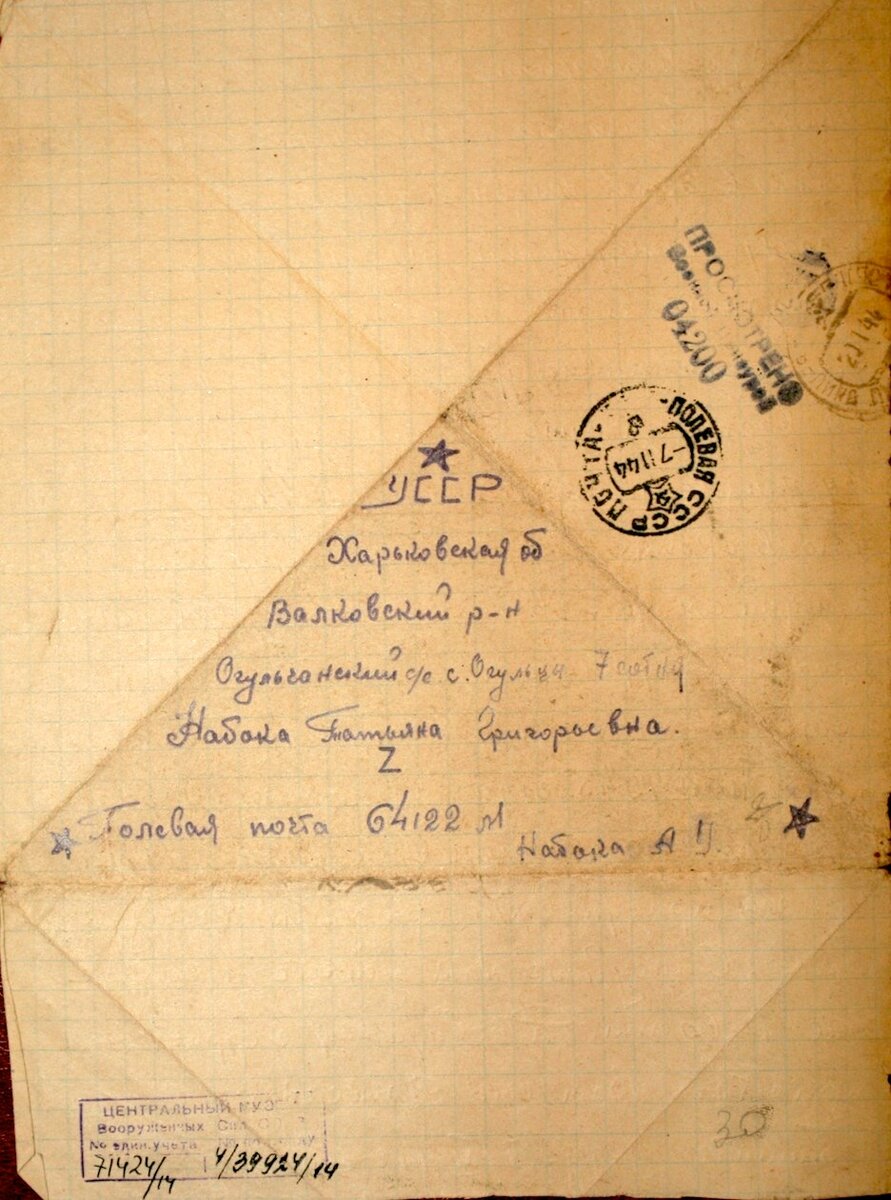 ПРОСМОТРЕНО
Военной Цензурой
04200
ПОЧТА-ПОЛЕВАЯ СССР
8
-7 II 44
УССР
Харьковская об
Валковский р-н
Огульчанский с/с с. Огульци 7 сотня
Набока Татьяна Григорьевна.
Z
Полевая почта 64122 М
Набока А
ЦЕНТРАЛЬНЫЙ МУЗ
Вооруженных Сил СС
№ един. учета
71424/14
4/39924/14
30